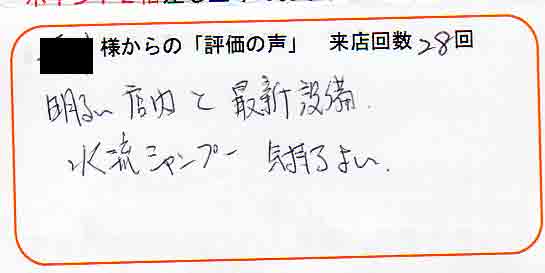 様からの「評価の声」 来店回数28回
明るい店内と最新設備.
水流シャンプー 気持ちよい.